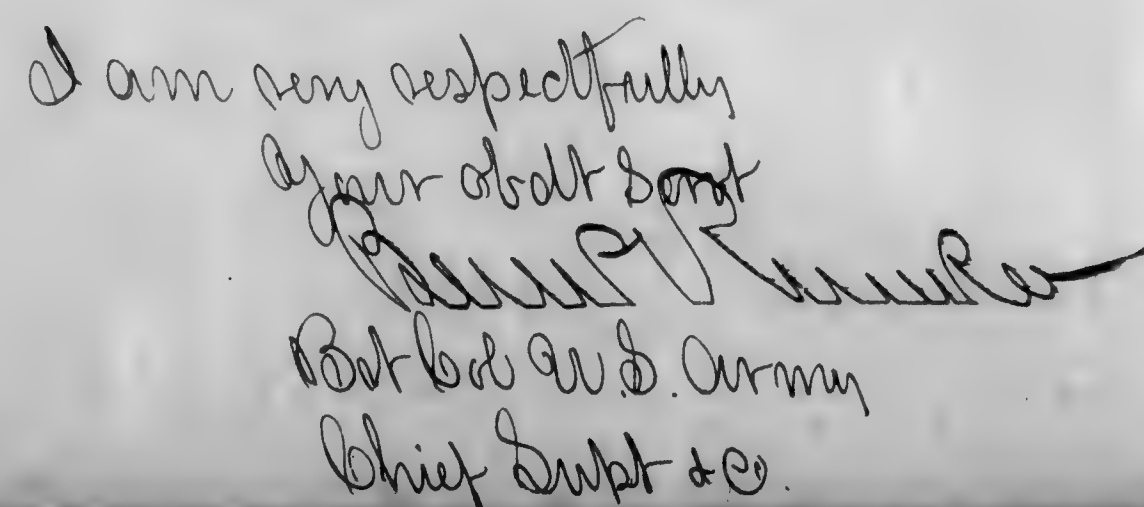 I am very respectfully
Your obdt Servt
Ben P Runkle
Bvt Col U.S. Army
Chief Supt &c.